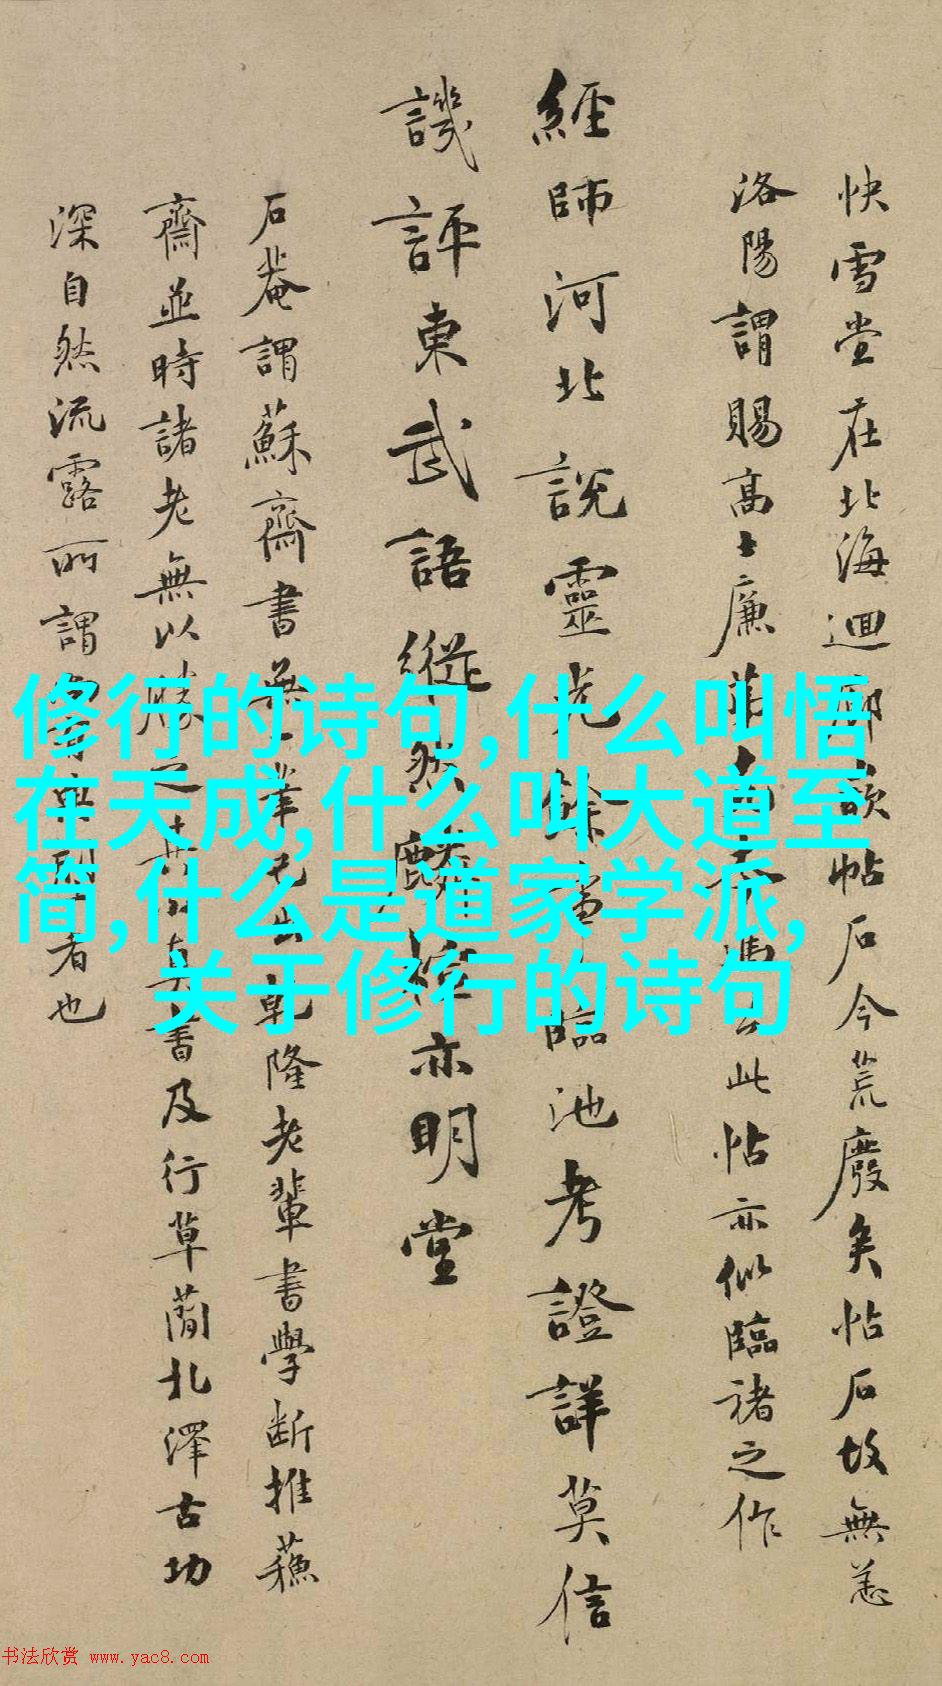 快雪堂在北海迴廊嵌帖石今荒廢矣帖石故無恙
洛陽謂賜高士廉
此帖亦似臨褚之作
經師河北說靈光餘
臨池考證詳莫信
譏評東武語縱然
亦明堂
石菴謂蘇齋書無一筆
乾隆老輩書學斷推蘓
齋並時諸老無以勝之其
真書及行草蘭北澤古功
深自然流露所謂
者也
修行的诗句,什么叫悟
在天成,什么叫大道至
简,什么是道家学派,
关于修行的诗句
书法欣赏 www.yac8.com